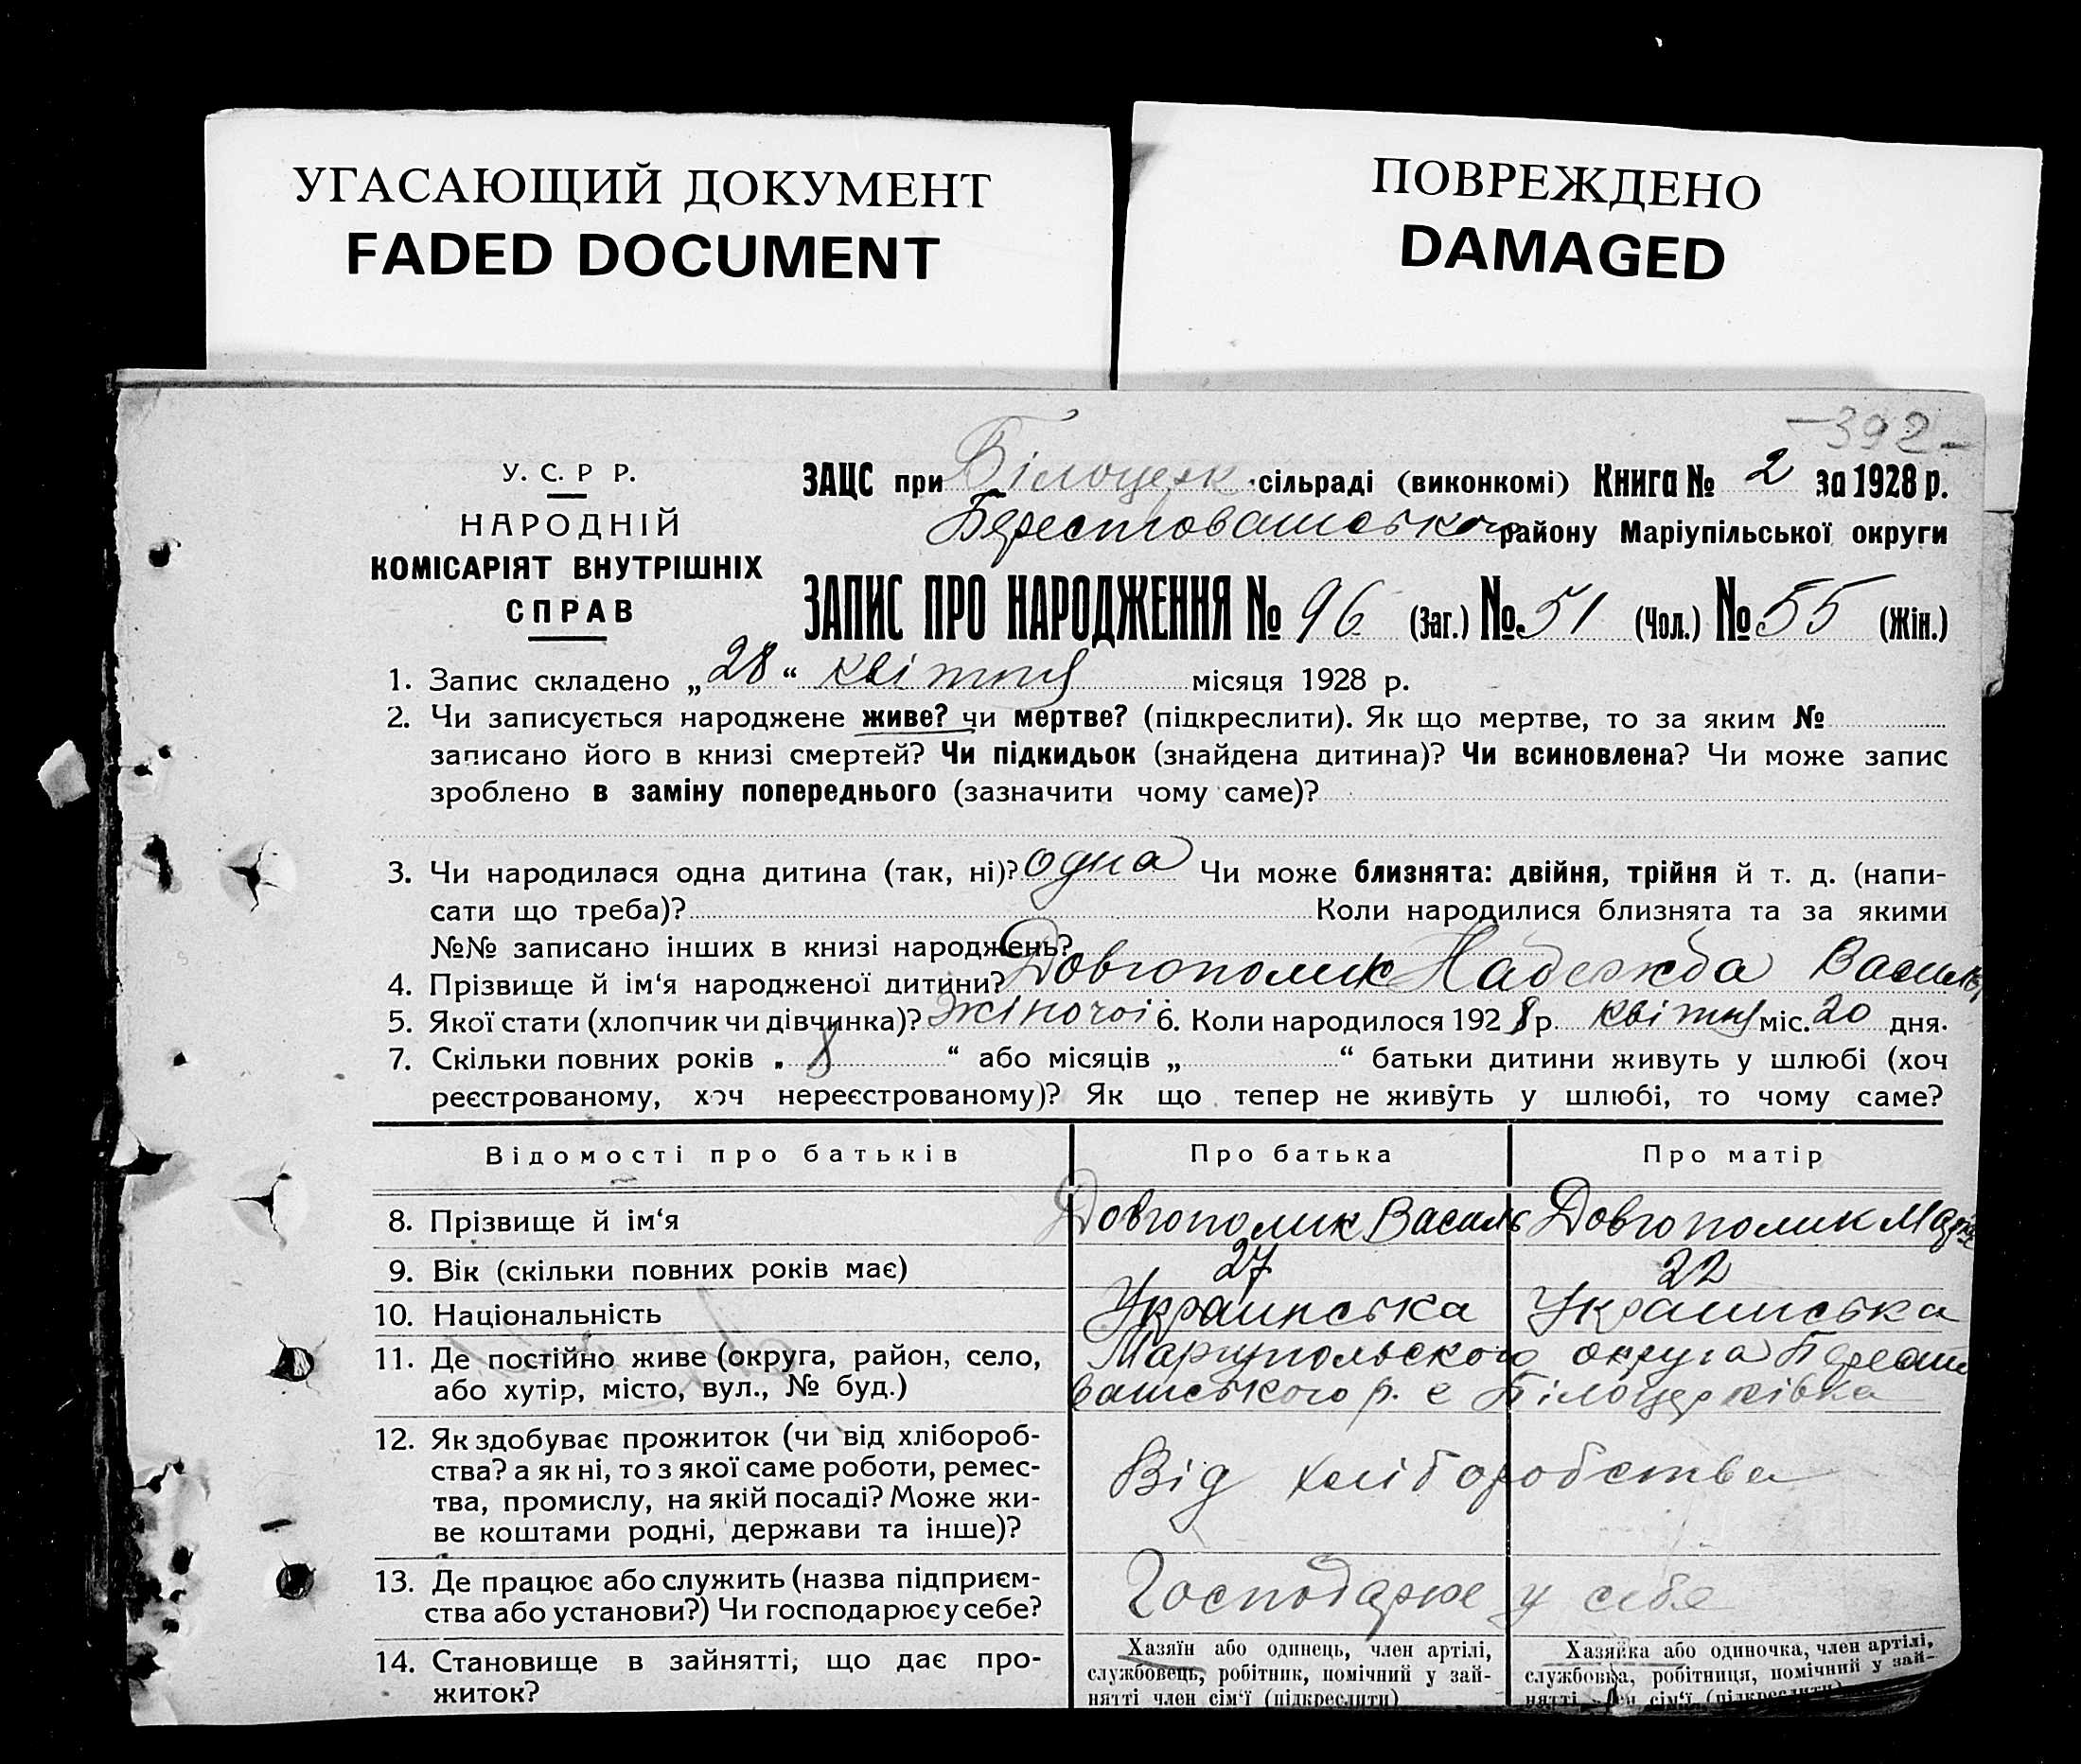 УГАСАЮЩИЙ ДОКУМЕНТ
FADED DOCUMENT
ПОВРЕЖДЕНО
DAMAGED
-392-
У. С. Р Р.
НАРОДНІЙ
КОМІСАРІЯТ ВНУТРІШНІХ
СПРАВ
ЗАЦС при Білоцерк. сільраді (виконкомі) Книга № 2 за 1928 р.
району Маріупільської округи
ЗАПИС ПРО НАРОДЖЕННЯ № 96 (Заг.) № 51 (Чол.) № 55 (Жін.)
1. Запис складено „28“ квітня місяця 1928 р.
2. Чи записується народжене живе? чи мертве? (підкреслити). Як що мертве, то за яким №
записано його в книзі смертей? Чи підкидьок (знайдена дитина)? Чи всиновлена? Чи може запис
зроблено в заміну попереднього (зазначити чому саме)?
3. Чи народилася одна дитина (так, ні)? одна Чи може близнята: двійня, трійня й т. д. (напи-
сати що треба)? Коли народилися близнята та за якими
№№ записано інших в книзі народжень?
4. Прізвище й ім‘я народженої дитини? Довгополик Надежда
5. Якої стати (хлопчик чи дівчинка)? жіночоі 6. Коли народилося 1928 р. квітня міс. 20 дня.
7. Скільки повних років „8“ або місяців „ “ батьки дитини живуть у шлюбі (хоч
реєстрованому, хоч нереєстрованому)? Як що тепер не живуть у шлюбі, то чому саме?
Відомості про батьків Про батька Про матір
8. Прізвище й ім‘я Довгополик Василь Довгополик
9. Вік (скільки повних років має) 27 22
10. Національність Украинська Украинська
11. Де постійно живе (округа, район, село, Мариупольского округа
або хутір, місто, вул., № буд.) р. с Білоцерківка
12. Як здобуває прожиток (чи від хлібороб-
ства? а як ні, то з якої саме роботи, ремес-
Від хліборобства
тва, промислу, на якій посаді? Може жи-
ве коштами родні, держави та інше)?
13. Де працює або служить (назва підприєм- Господарює у себе
ства або установи?) Чи господарює у себе?
14. Становище в зайнятті, що дає про-
житок?
Хазяїн або одинець, член артілі,
службовець, робітник, помічний у зай-
нятті член сім‘ї (підкреслити)
Хазяйка або одиночка, член артілі,
службовка, робітниця, помічний у зай-
нятті член сім‘ї (підкреслити)